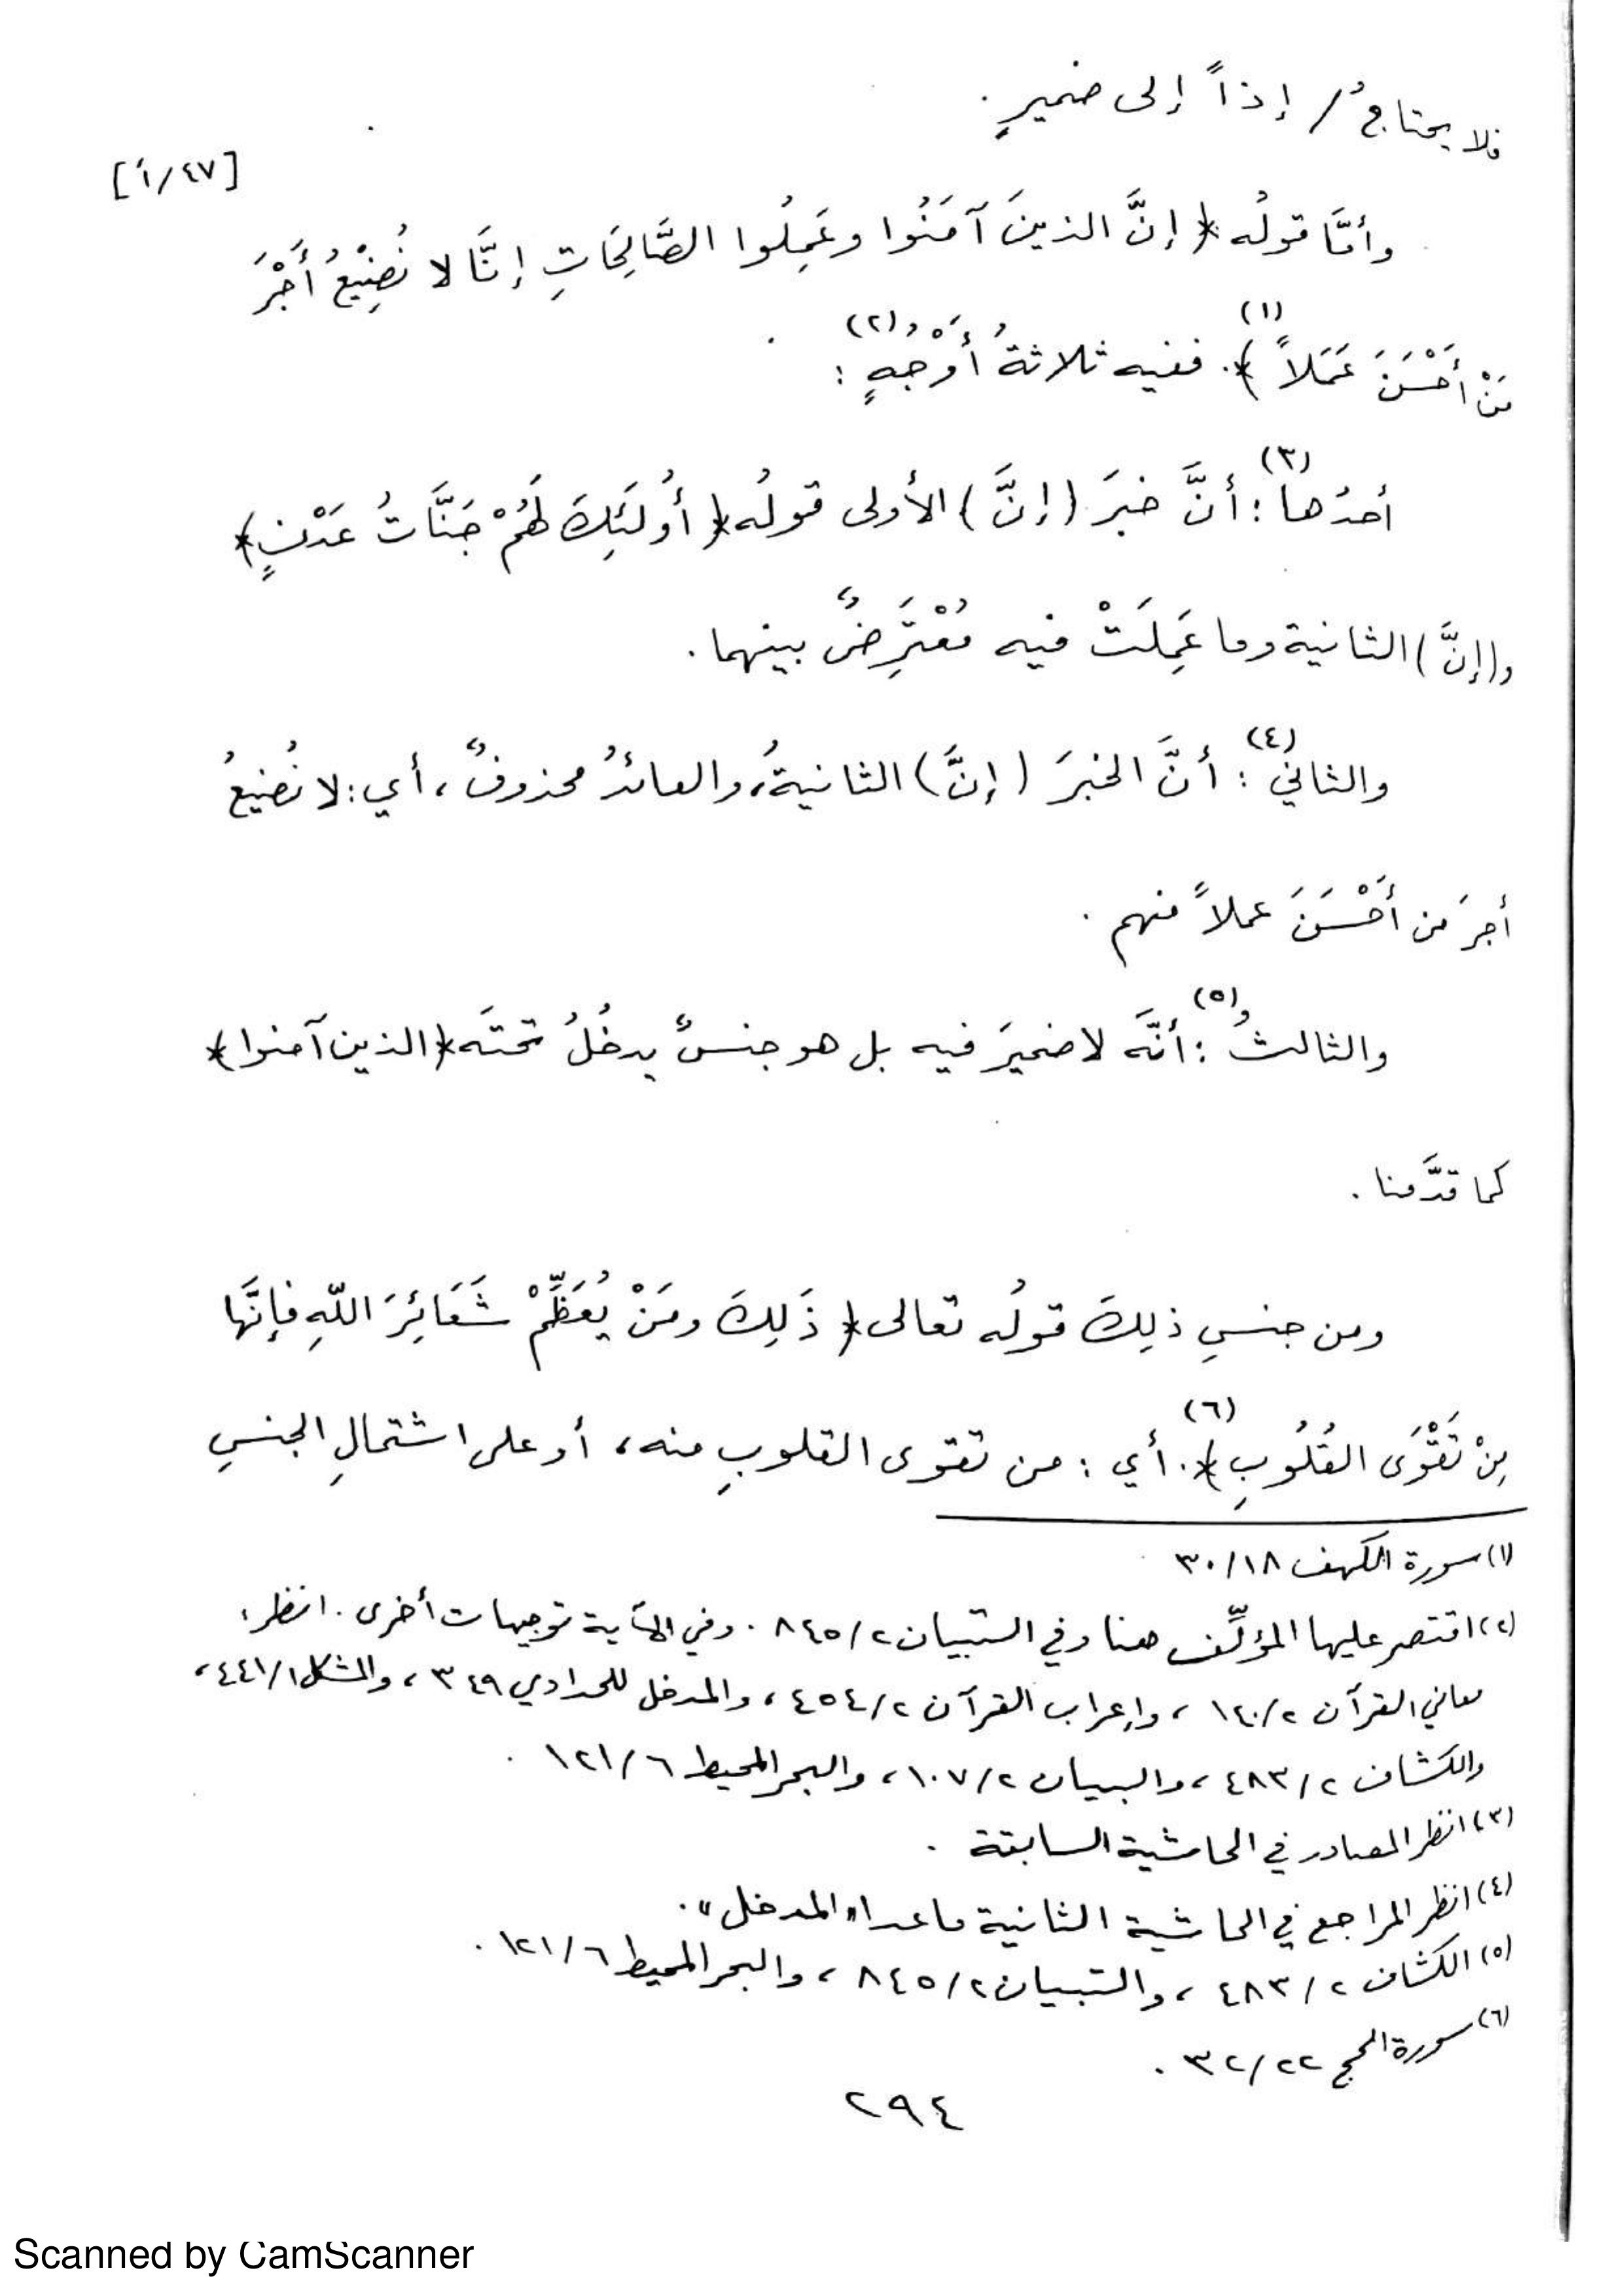 فلا يحتاجُ / إذاً إلى ضميرٍ.
[٤٧/أ]
وأمَّا قولُه ﴿ إنَّ الذينَ آمَنُوا وعَمِلُوا الصَّالِحَاتِ إنَّا لا نُضِيْعُ أَجْرَ
مَنْ أَحْسَنَ عَمَلاً ﴾(١). ففيه ثلاثةُ أَوْجُهٍ(٢) :
أحدُها(٣) : أنَّ خبرَ (إنَّ) الأولى قولُه ﴿ أُولَئِكَ لَهُمْ جَنَّاتُ عَدْنٍ ﴾
و(إنَّ) الثانية وما عَمِلَتْ فيه مُعْتَرِضٌ بينهما.
والثاني(٤) : أنَّ الخبرَ (إنَّ) الثانيةُ، والعائدُ محذوفٌ، أي: لا نُضيعُ
أجرَ من أَحْسَنَ عملاً منهم.
والثالثُ(٥) : أنَّه لا ضميرَ فيه بل هو جنسٌ يدخُلُ تحتَه ﴿الذين آمنوا﴾
كما قدَّمنا.
ومن جنسِ ذلِكَ قولُه تعالى ﴿ ذَلِكَ ومَنْ يُعَظِّمْ شَعَائِرَ اللّهِ فإنَّها
مِنْ تَقْوَى القُلُوبِ ﴾(٦). أي : من تقوى القلوبِ منه، أو على اشتمالِ الجنسِ
(١) سورة الكهف ٣٠/١٨
(٢) اقتصر عليها المؤلِّف هنا وفي التبيان ٨٤٥/٢. وفي الآية توجيهات أخرى. انظر:
معاني القرآن ١٤٠/٢، وإعراب القرآن ٤٥٤/٢، والمدخل للحدادي ٣٤٩، والمشكل ٤٤١/١،
والكشاف ٤٨٣/٢، والبيان ١٠٧/٢، والبحر المحيط ١٢١/٦.
(٣) انظر المصادر في الحاشية السابقة.
(٤) انظر المراجع في الحاشية الثانية ماعدا "المدخل".
(٥) الكشاف ٤٨٣/٢، والتبيان ٨٤٥/٢، والبحر المحيط ١٢١/٦.
(٦) سورة الحج ٣٢/٢٢.
٢٩٤
Scanned by CamScanner